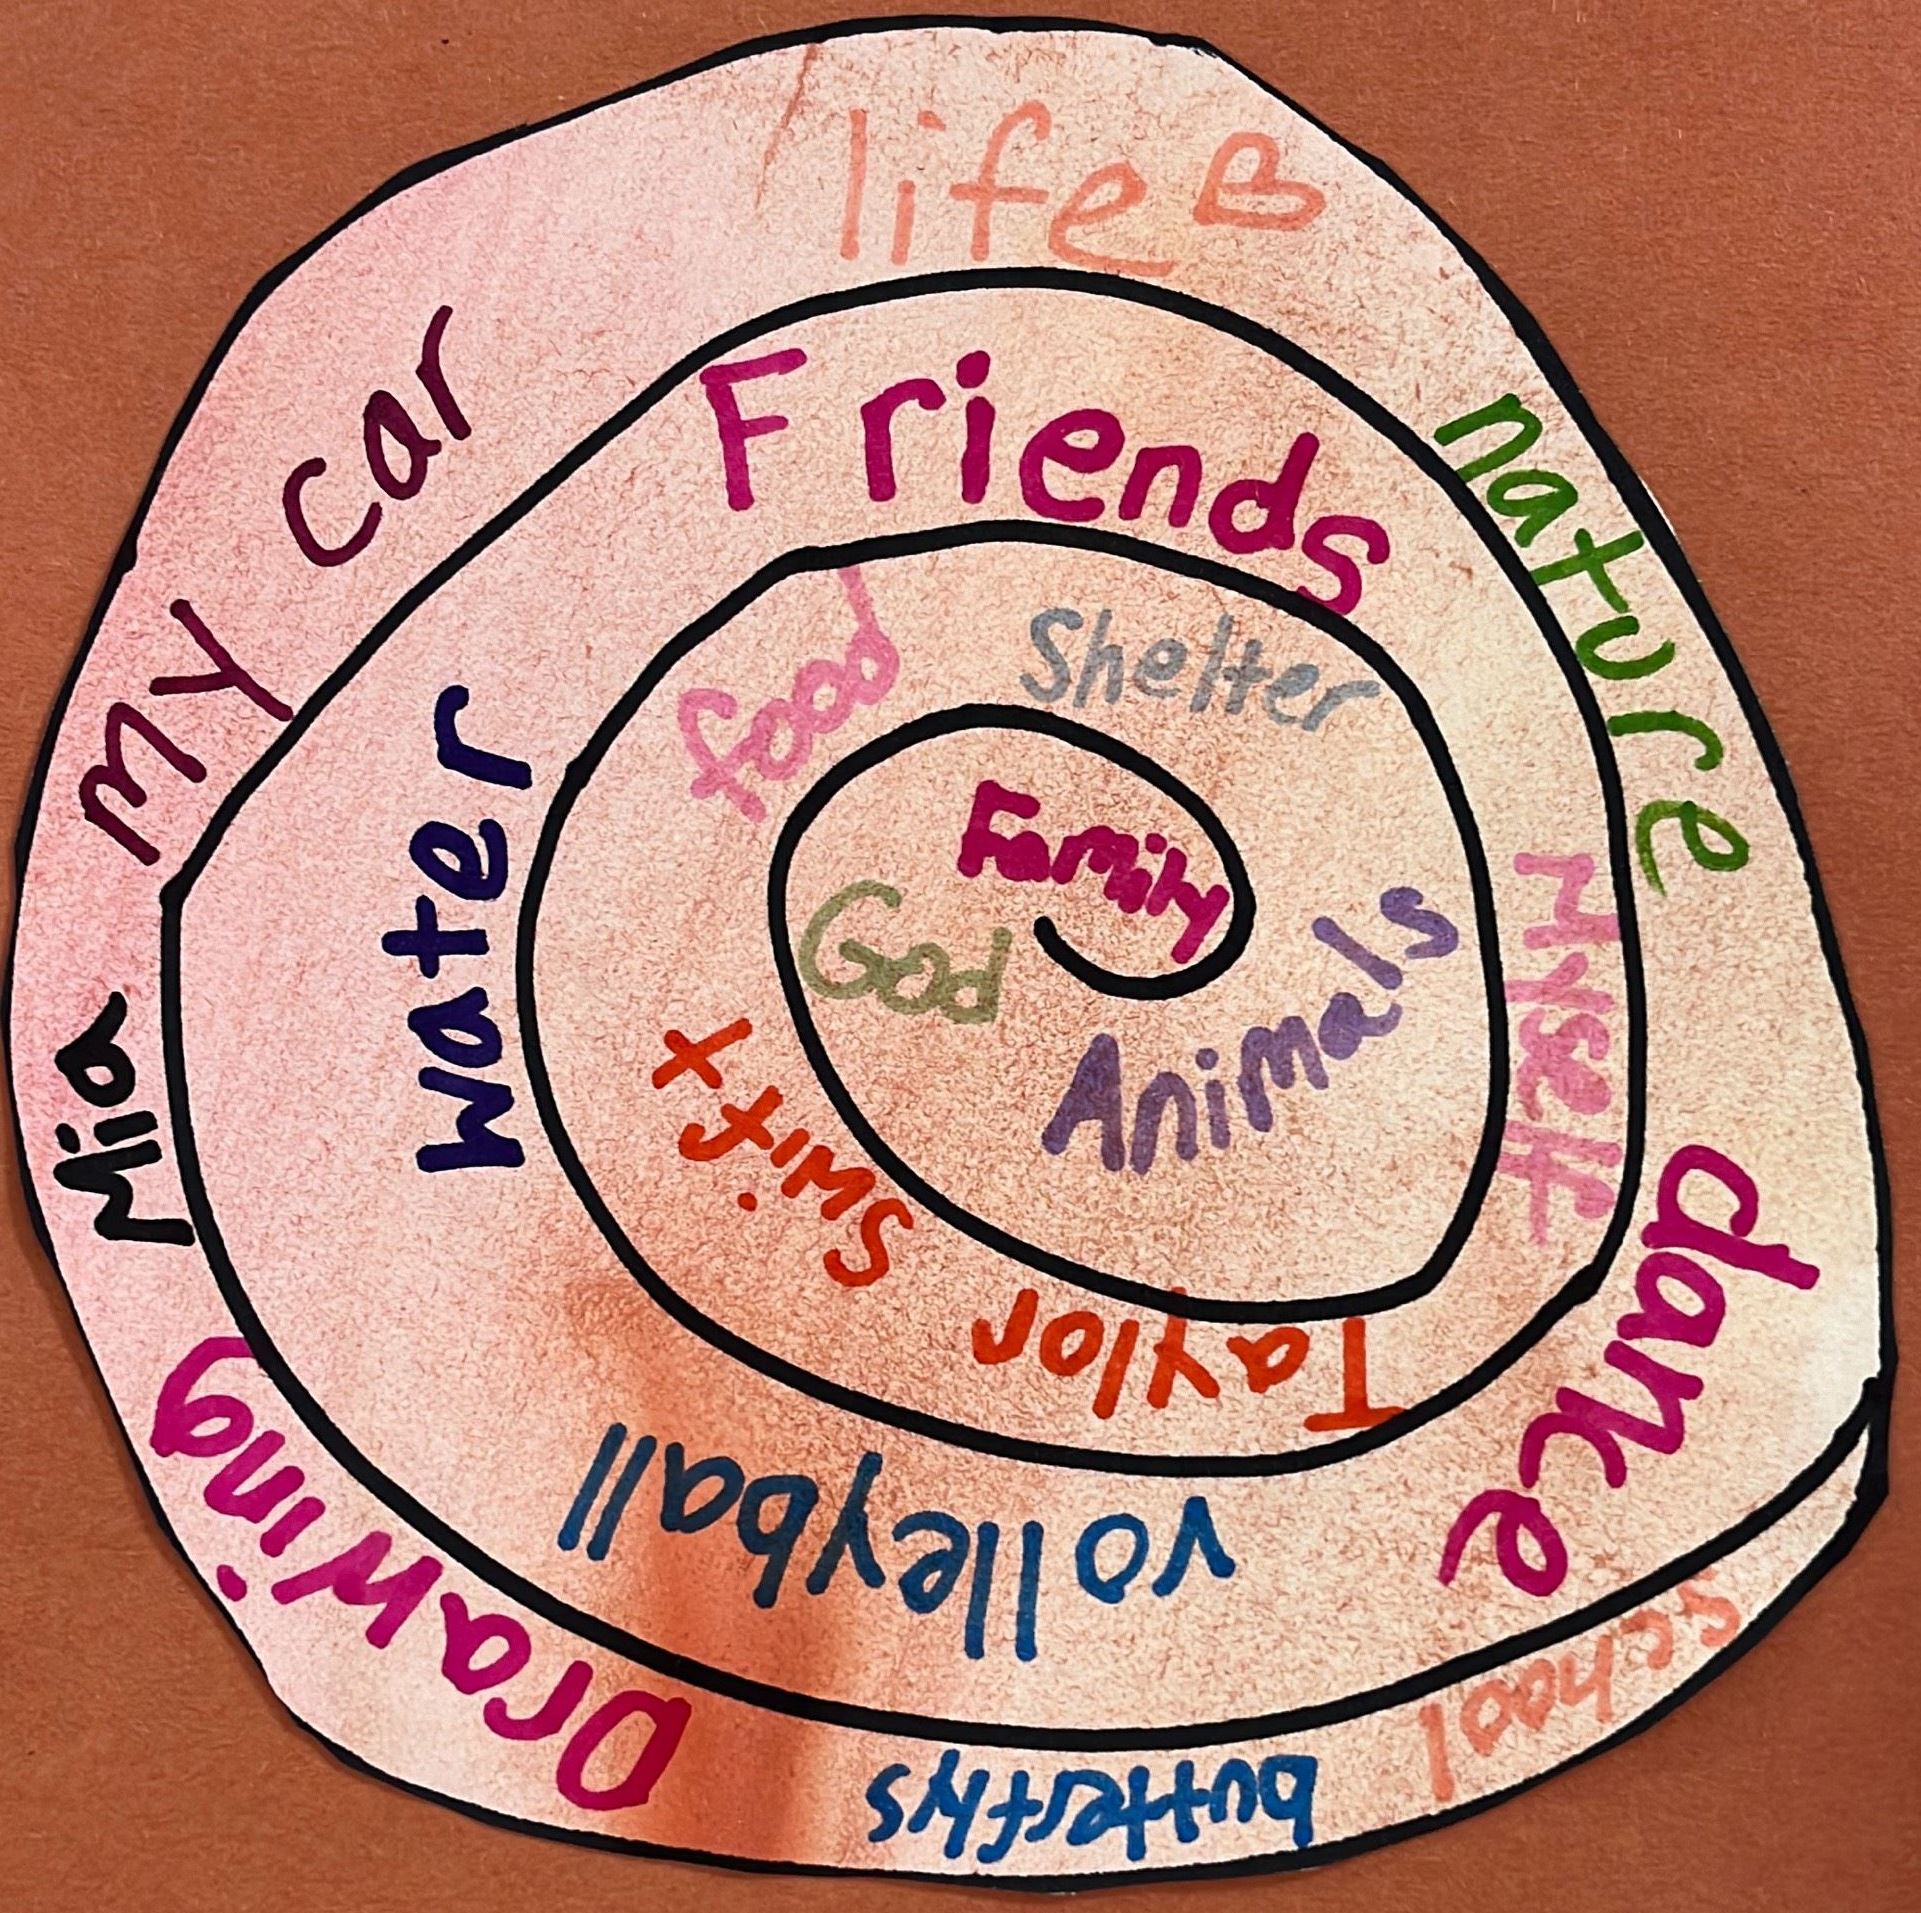 Family
God
Animals
Shelter
food
Swift
Taylor
Myself
Friends
water
volleyball
dance
nature
life
my car
Mia
Drawing
butterflys
school